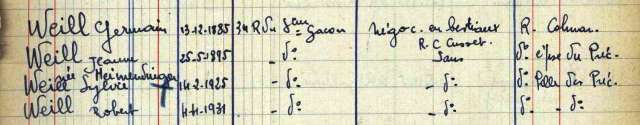 Weill Germain 13-12-1885 34 R du Gacon négoc. en bestiaux R. Colmar.
R.C. Cusset.
Weill Jeanne 25-5-1895 - d° Sans d° épse du Préc.
née
Weill Sylvie 14-2-1925 - d° - d° d° fille des Préc.
Weill Robert 4-11-1931 - d° - d° d° - d°